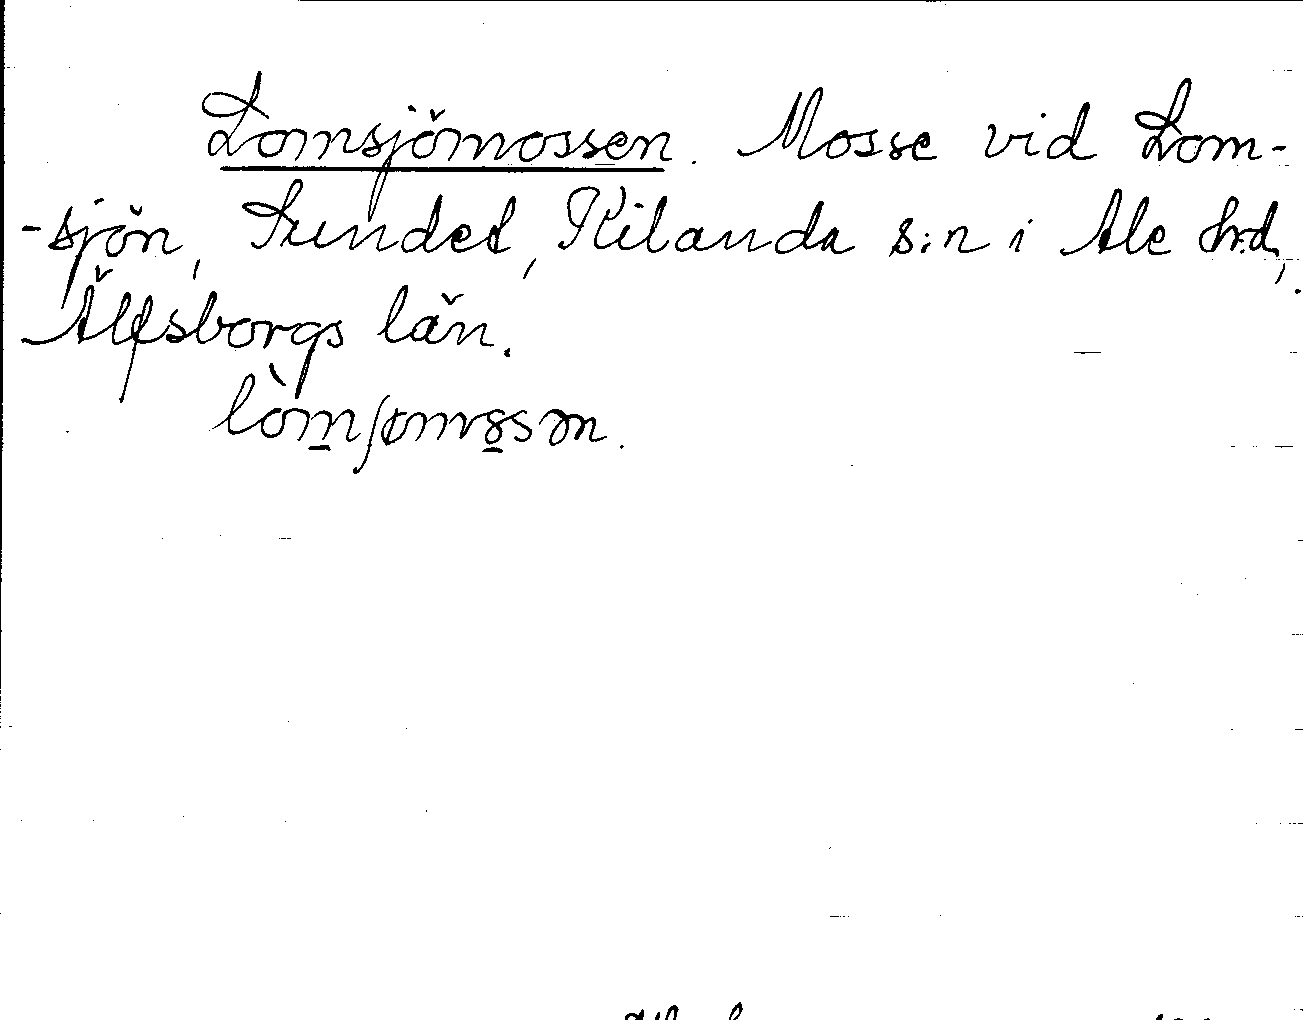 Lomsjömossen. Mosse vid Lom-
-sjön, Sundet, Kilanda s:n i Ale h:d,
Älfsborgs län.
lòm̲ʃømo̲sən.